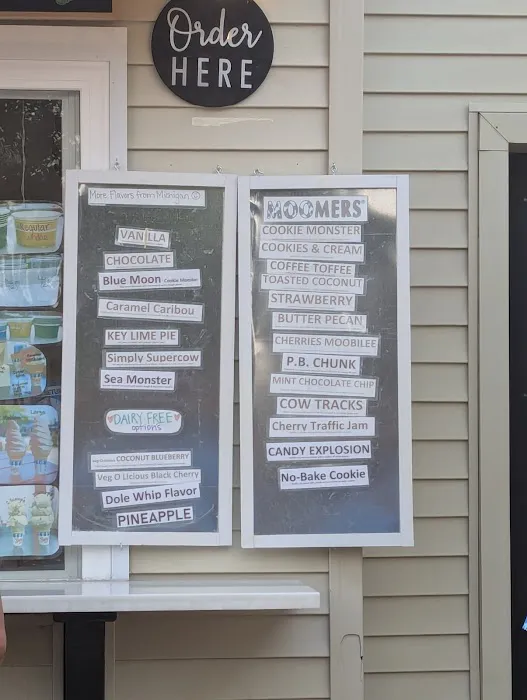 Order
HERE
More Flavors from Michigan
VANILLA
CHOCOLATE
Blue Moon Cookie Monster
Caramel Caribou
KEY LIME PIE
Simply Supercow
Sea Monster
DAIRY FREE
options
COCONUT BLUEBERRY
Veg O Licious Black Cherry
Dole Whip Flavor
PINEAPPLE
MOOMERS
COOKIE MONSTER
COOKIES & CREAM
COFFEE TOFFEE
TOASTED COCONUT
STRAWBERRY
BUTTER PECAN
CHERRIES MOOBILEE
P.B. CHUNK
MINT CHOCOLATE CHIP
COW TRACKS
Cherry Traffic Jam
CANDY EXPLOSION
No-Bake Cookie
Regular
Large